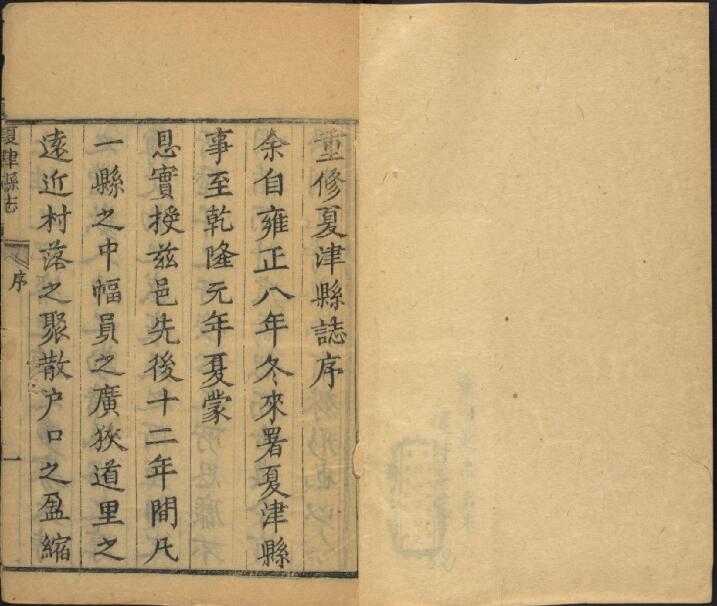 重修夏津縣誌序
余自雍正八年冬來署夏津縣
事至乾隆元年夏蒙
恩實授兹邑先後十二年間凡
一縣之中幅員之廣狹道里之
遠近村落之聚散户口之盈縮
夏津縣志
序
一